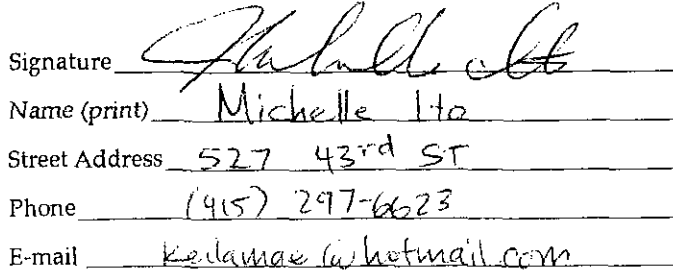 Signature
Name (print) Michelle Ito
Street Address 527 43rd ST
Phone (415) 297-6623
E-mail keilamae@hotmail.com